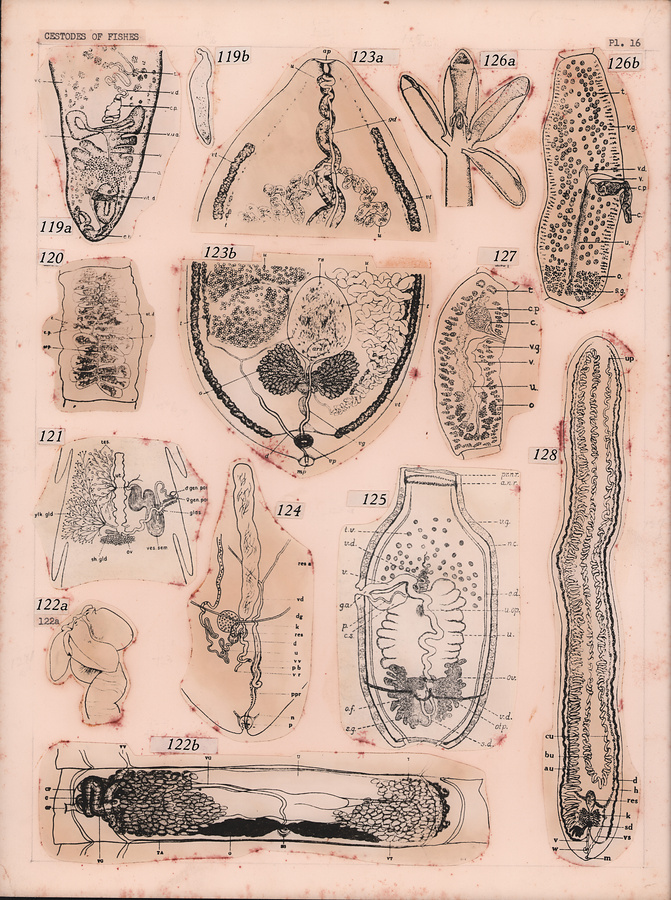 CESTODES OF FISHES
Pl. 16
119b
123a
126a
126b
ap
u
v.d
c.p.
v.u.a
vit.d
t.
v.g.
v.d.
v.
c.p.
c.
u.
o.
s.g.
119a
120
123b
127
c.p
c.
v.g
v.
u
o
vt
vg
vp
121
tes.
d gen.por
♀gen.por
glds.
ylk.gld
sh.gld
ov
ves.sem
124
res a
vd
dg
k
res
d
u
vv
pb
vr
ppr
n
p
125
p.n.r.
a.n.r.
v.g.
t.v.
v.d.
n.c.
v.
c.d.
g.a.
u.op.
p.
c.s.
u.
ov.
o.f.
v.d.
e.g.
otp.
s.d.
128
up
cu
bu
au
d
h
res
k
sd
vs
v
w
m
122a
122a
122b